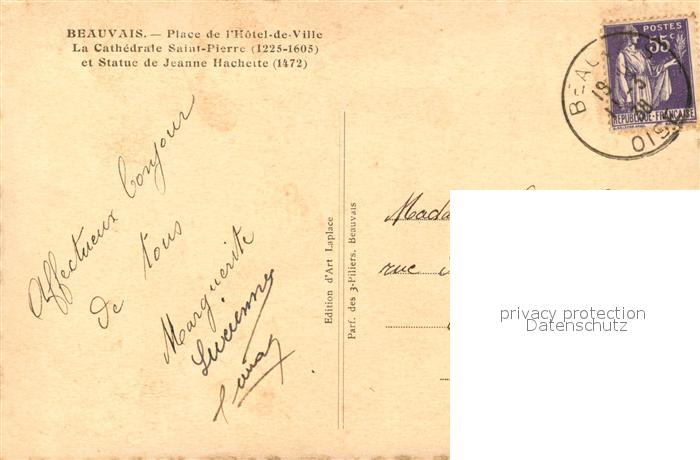 BEAUVAIS. — Place de l'Hôtel-de-Ville
La Cathédrale Saint-Pierre (1225-1605)
et Statue de Jeanne Hachette (1472)
POSTES
55c
REPUBLIQUE-FRANÇAISE
BEAU
18
38
OISE
Affectueux bonjour
de tous
Marguerite
Lucienne
Edition d'Art Laplace
Parf. des 3-Piliers, Beauvais
Mada
rue
privacy protection
Datenschutz